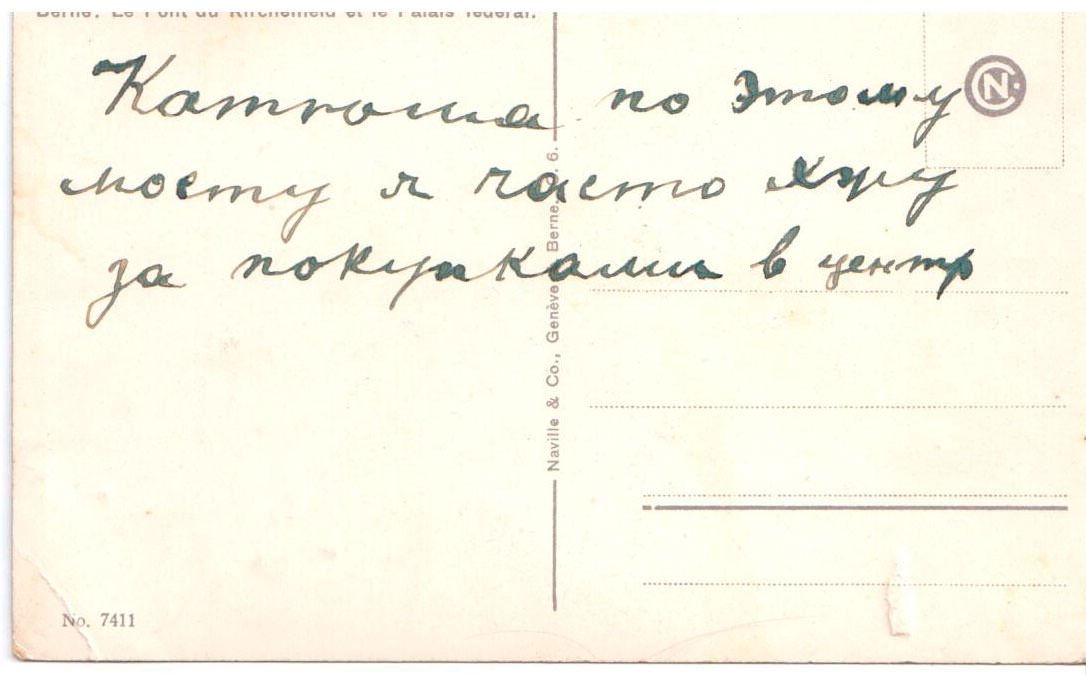 Berne. Le Pont du Kirchenfeld et le Palais fédéral.
Катюша по этому
мосту я часто хожу
за покупками в центр
Naville & Co., Genève Berne 6.
CN
No. 7411